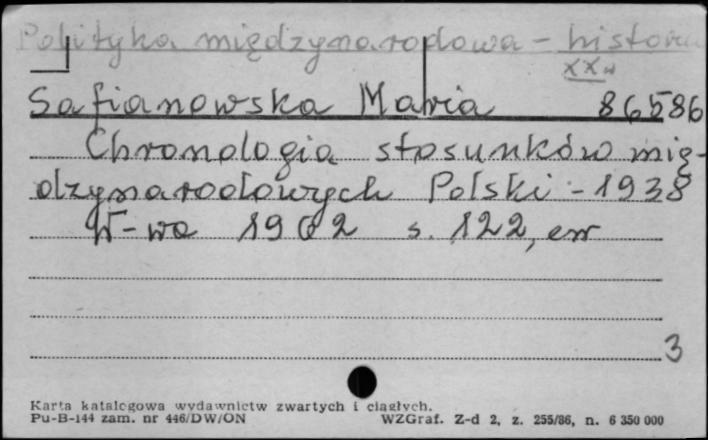 Polityka międzynarodowa - historia
XX w
Safianowska Maria 86586
Chronologia stosunków mię-
dzynarodowych Polski - 1938
W-wa 1962 s. 122,
3
Karta katalogowa wydawnictw zwartych i ciągłych.
Pu-B-144 zam. nr 446/DW/ON WZGraf. Z-d 2, z. 255/86, n. 6 350 000